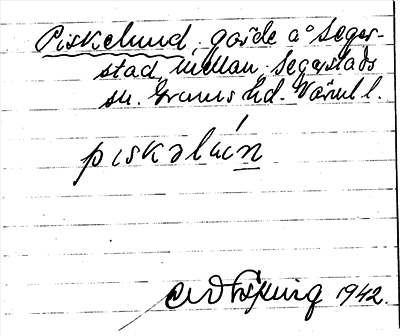 Piskelund, gärde å Seger-
stad mellan Segerstads
sn. Grums hd. Värml.
pıskəlún
1942.